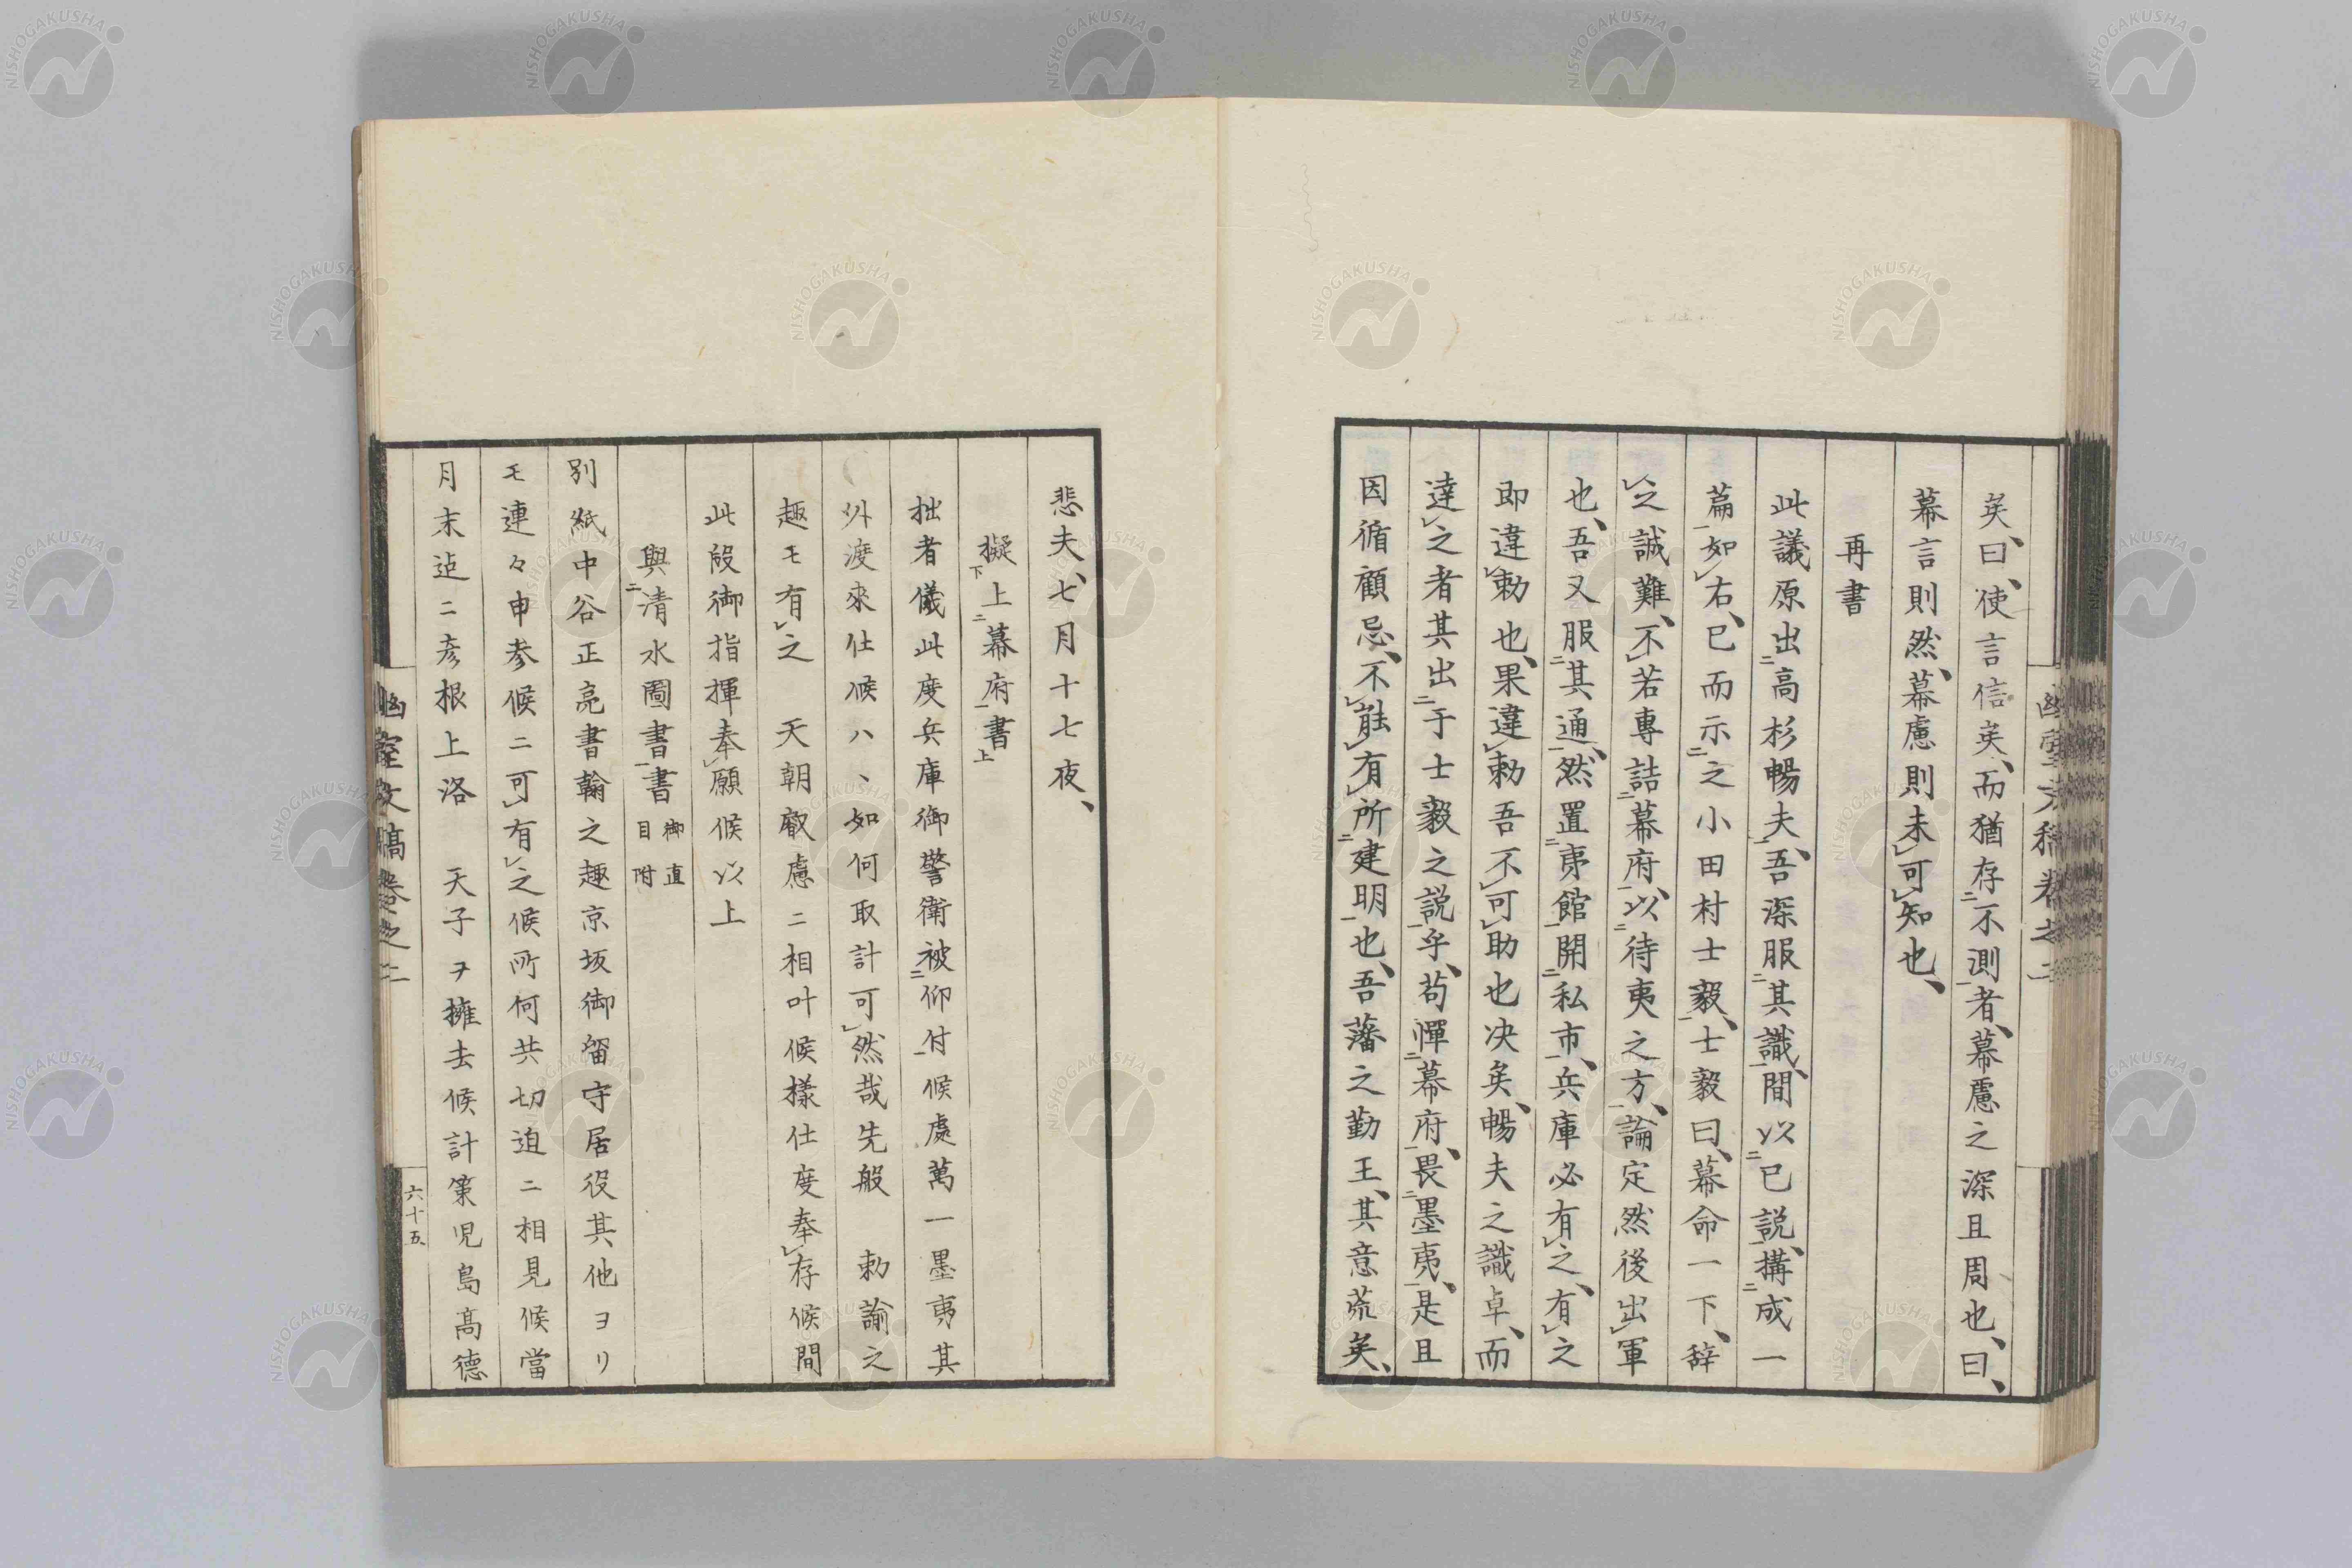 矣、曰、使言信矣、而猶存二不測一者、幕慮之深且周也、曰、
幕言則然、幕慮則未レ可レ知也、
再書
此議原出二高杉暢夫一、吾深服二其識一、間以二已説一、搆二成一
篇一如レ右、已而示二之小田村士毅一、士毅曰、幕命一下、辞
レ之誠難、不レ若専詰二幕府一、以二待夷之方一、論定然後出レ軍
也、吾又服二其通一、然置二夷館一開二私市一、兵庫必有レ之、有レ之
即違レ勅也、果違レ勅吾不レ可レ助也决矣、暢夫之識卓、而
達レ之者其出二于士毅之説一乎、苟憚二幕府一、畏二墨夷一、是且
因循顧忌、不レ能レ有レ所二建明一也、吾藩之勤王、其意荒矣、
悲夫、七月十七夜、
擬下上二幕府一書上
拙者儀此度兵庫御警衛被二仰付一候處萬一墨夷其
外渡來仕候ハヽ如何取計可レ然哉先般　勅諭之
趣モ有レ之　天朝叡慮ニ相叶候様仕度奉レ存候間
此段御指揮奉レ願候以上
與二清水圖書一書 御直目附
別紙中谷正亮書翰之趣京坂御留守居役其他ヨリ
モ連々申参候ニ可レ有レ之候所何共切迫ニ相見候當
月末迠ニ彦根上洛　天子ヲ擁去候計策児島高徳
幽室文稿巻之二
六十五
NISHOGAKUSHA